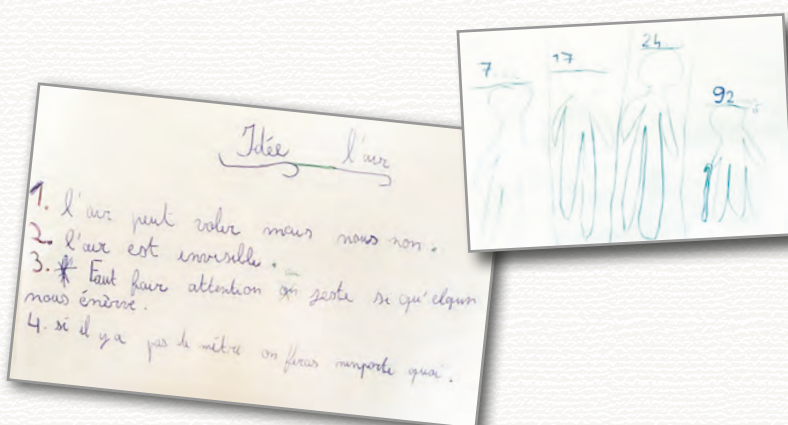 Idée l'air
1. l'air peut voler mais nous non.
2. l'air est invisible.
3. Faut fair attention on geste si qu'elqun
nous énèrve.
4. si il y a pas le mètre on feras n'importe quoi.
7
17
24
92